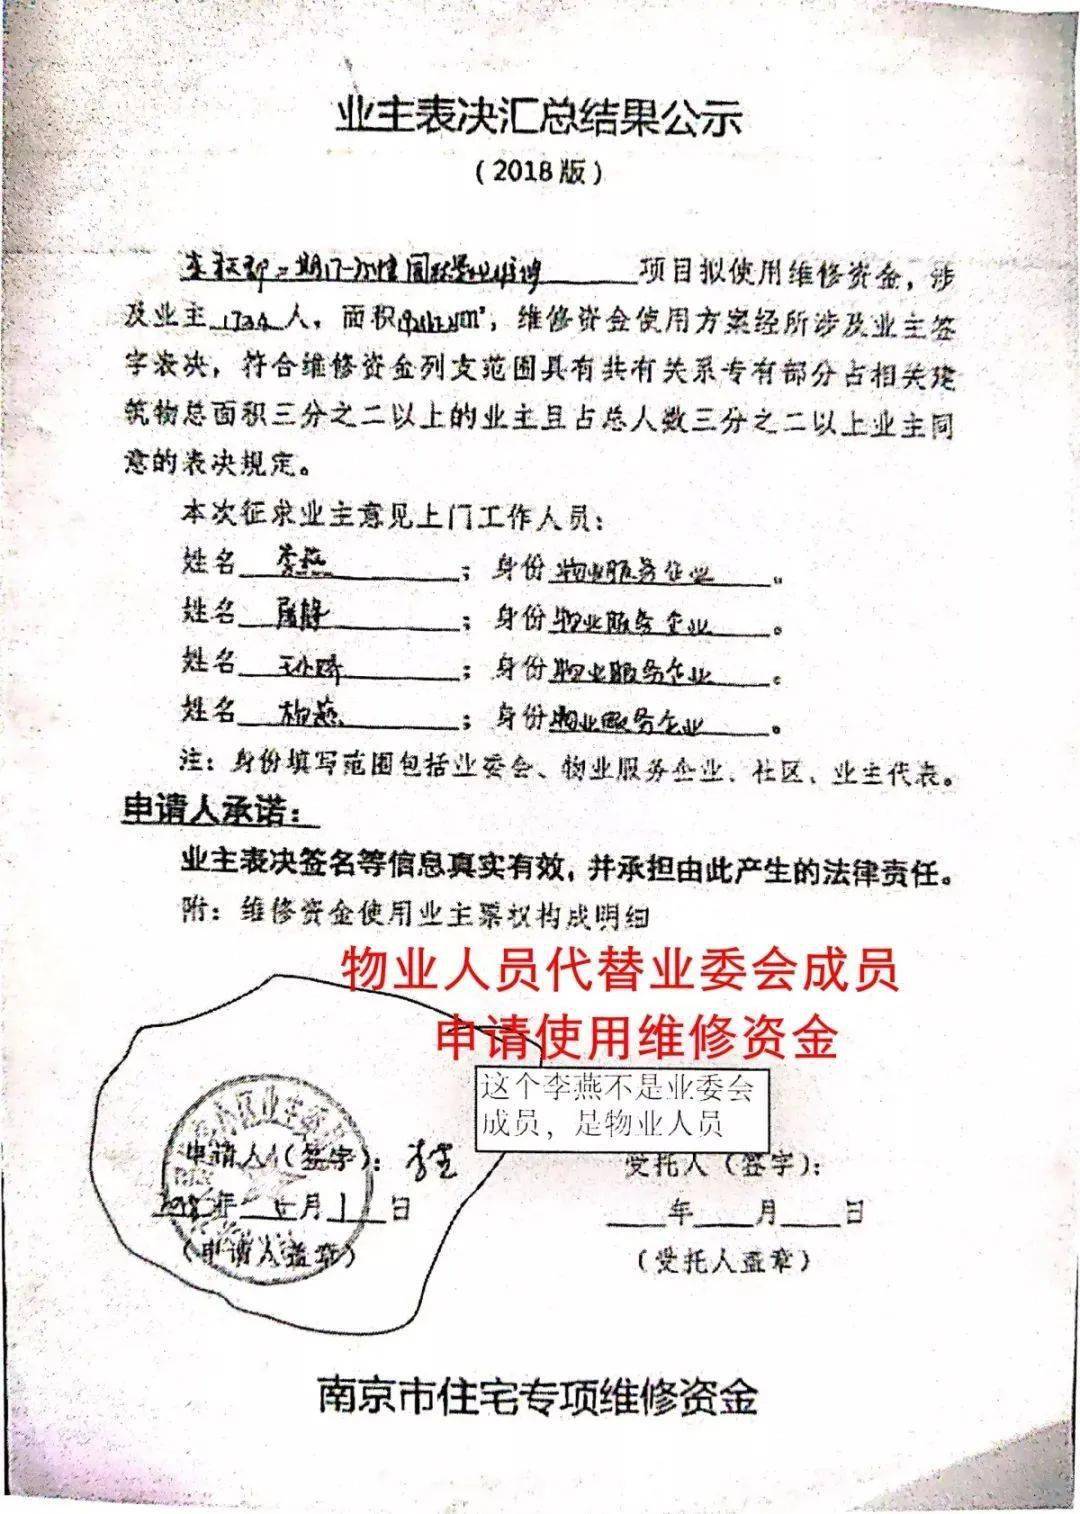 业主表决汇总结果公示
（2018版）
项目拟使用维修资金，涉
及业主1734人，面积㎡，维修资金使用方案经所涉及业主签
字表决，符合维修资金列支范围具有共有关系专有部分占相关建
筑物总面积三分之二以上的业主且占总人数三分之二以上业主同
意的表决规定。
本次征求业主意见上门工作人员：
姓名 李燕；身份 物业服务企业。
姓名；身份 物业服务企业。
姓名；身份 物业服务企业。
姓名；身份 物业服务企业。
注：身份填写范围包括业委会、物业服务企业、社区、业主代表。
申请人承诺：
业主表决签名等信息真实有效，并承担由此产生的法律责任。
附：维修资金使用业主票权构成明细
物业人员代替业委会成员
申请使用维修资金
这个李燕不是业委会
成员，是物业人员
小区业主
申请人（签字）：
受托人（签字）：
年 月 日
年 月 日
（申请人盖章）
（受托人盖章）
南京市住宅专项维修资金